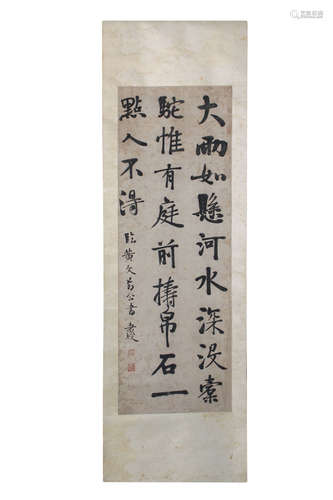 大雨如懸河水深没橐
駝惟有庭前擣帛石一
點入不得
臨黄文節公書